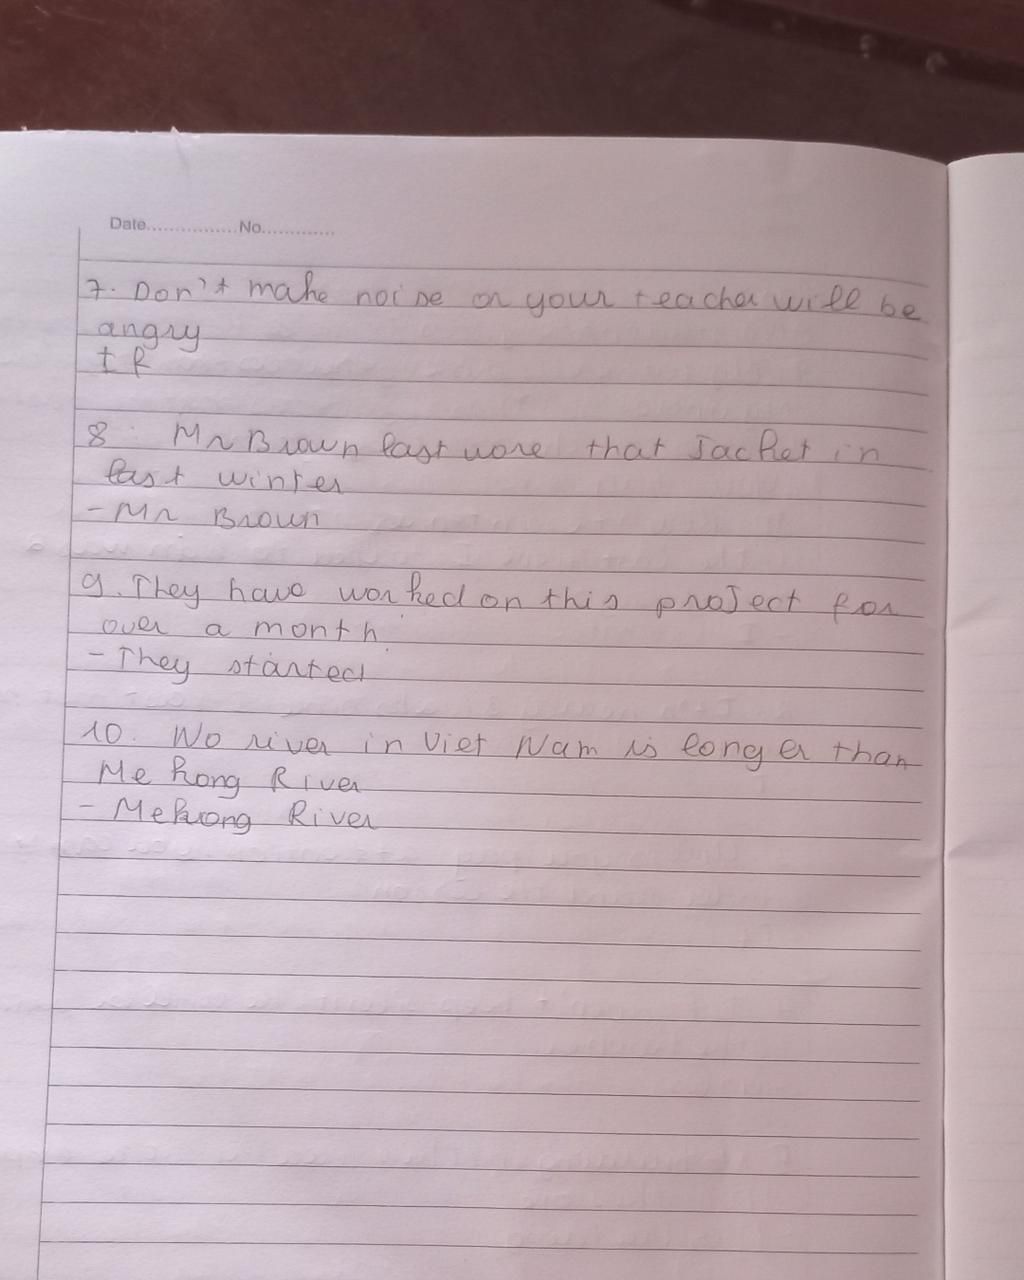 Date................No.............
7. Don't make noise or your teacher will be
angry
If
8. Mr Brown last wore that Jacket in
last winter
- Mr Brown
9. They have worked on this project for
over a month.
- They started
10. No river in Viet Nam is longer than
Me kong River
- Mekong River